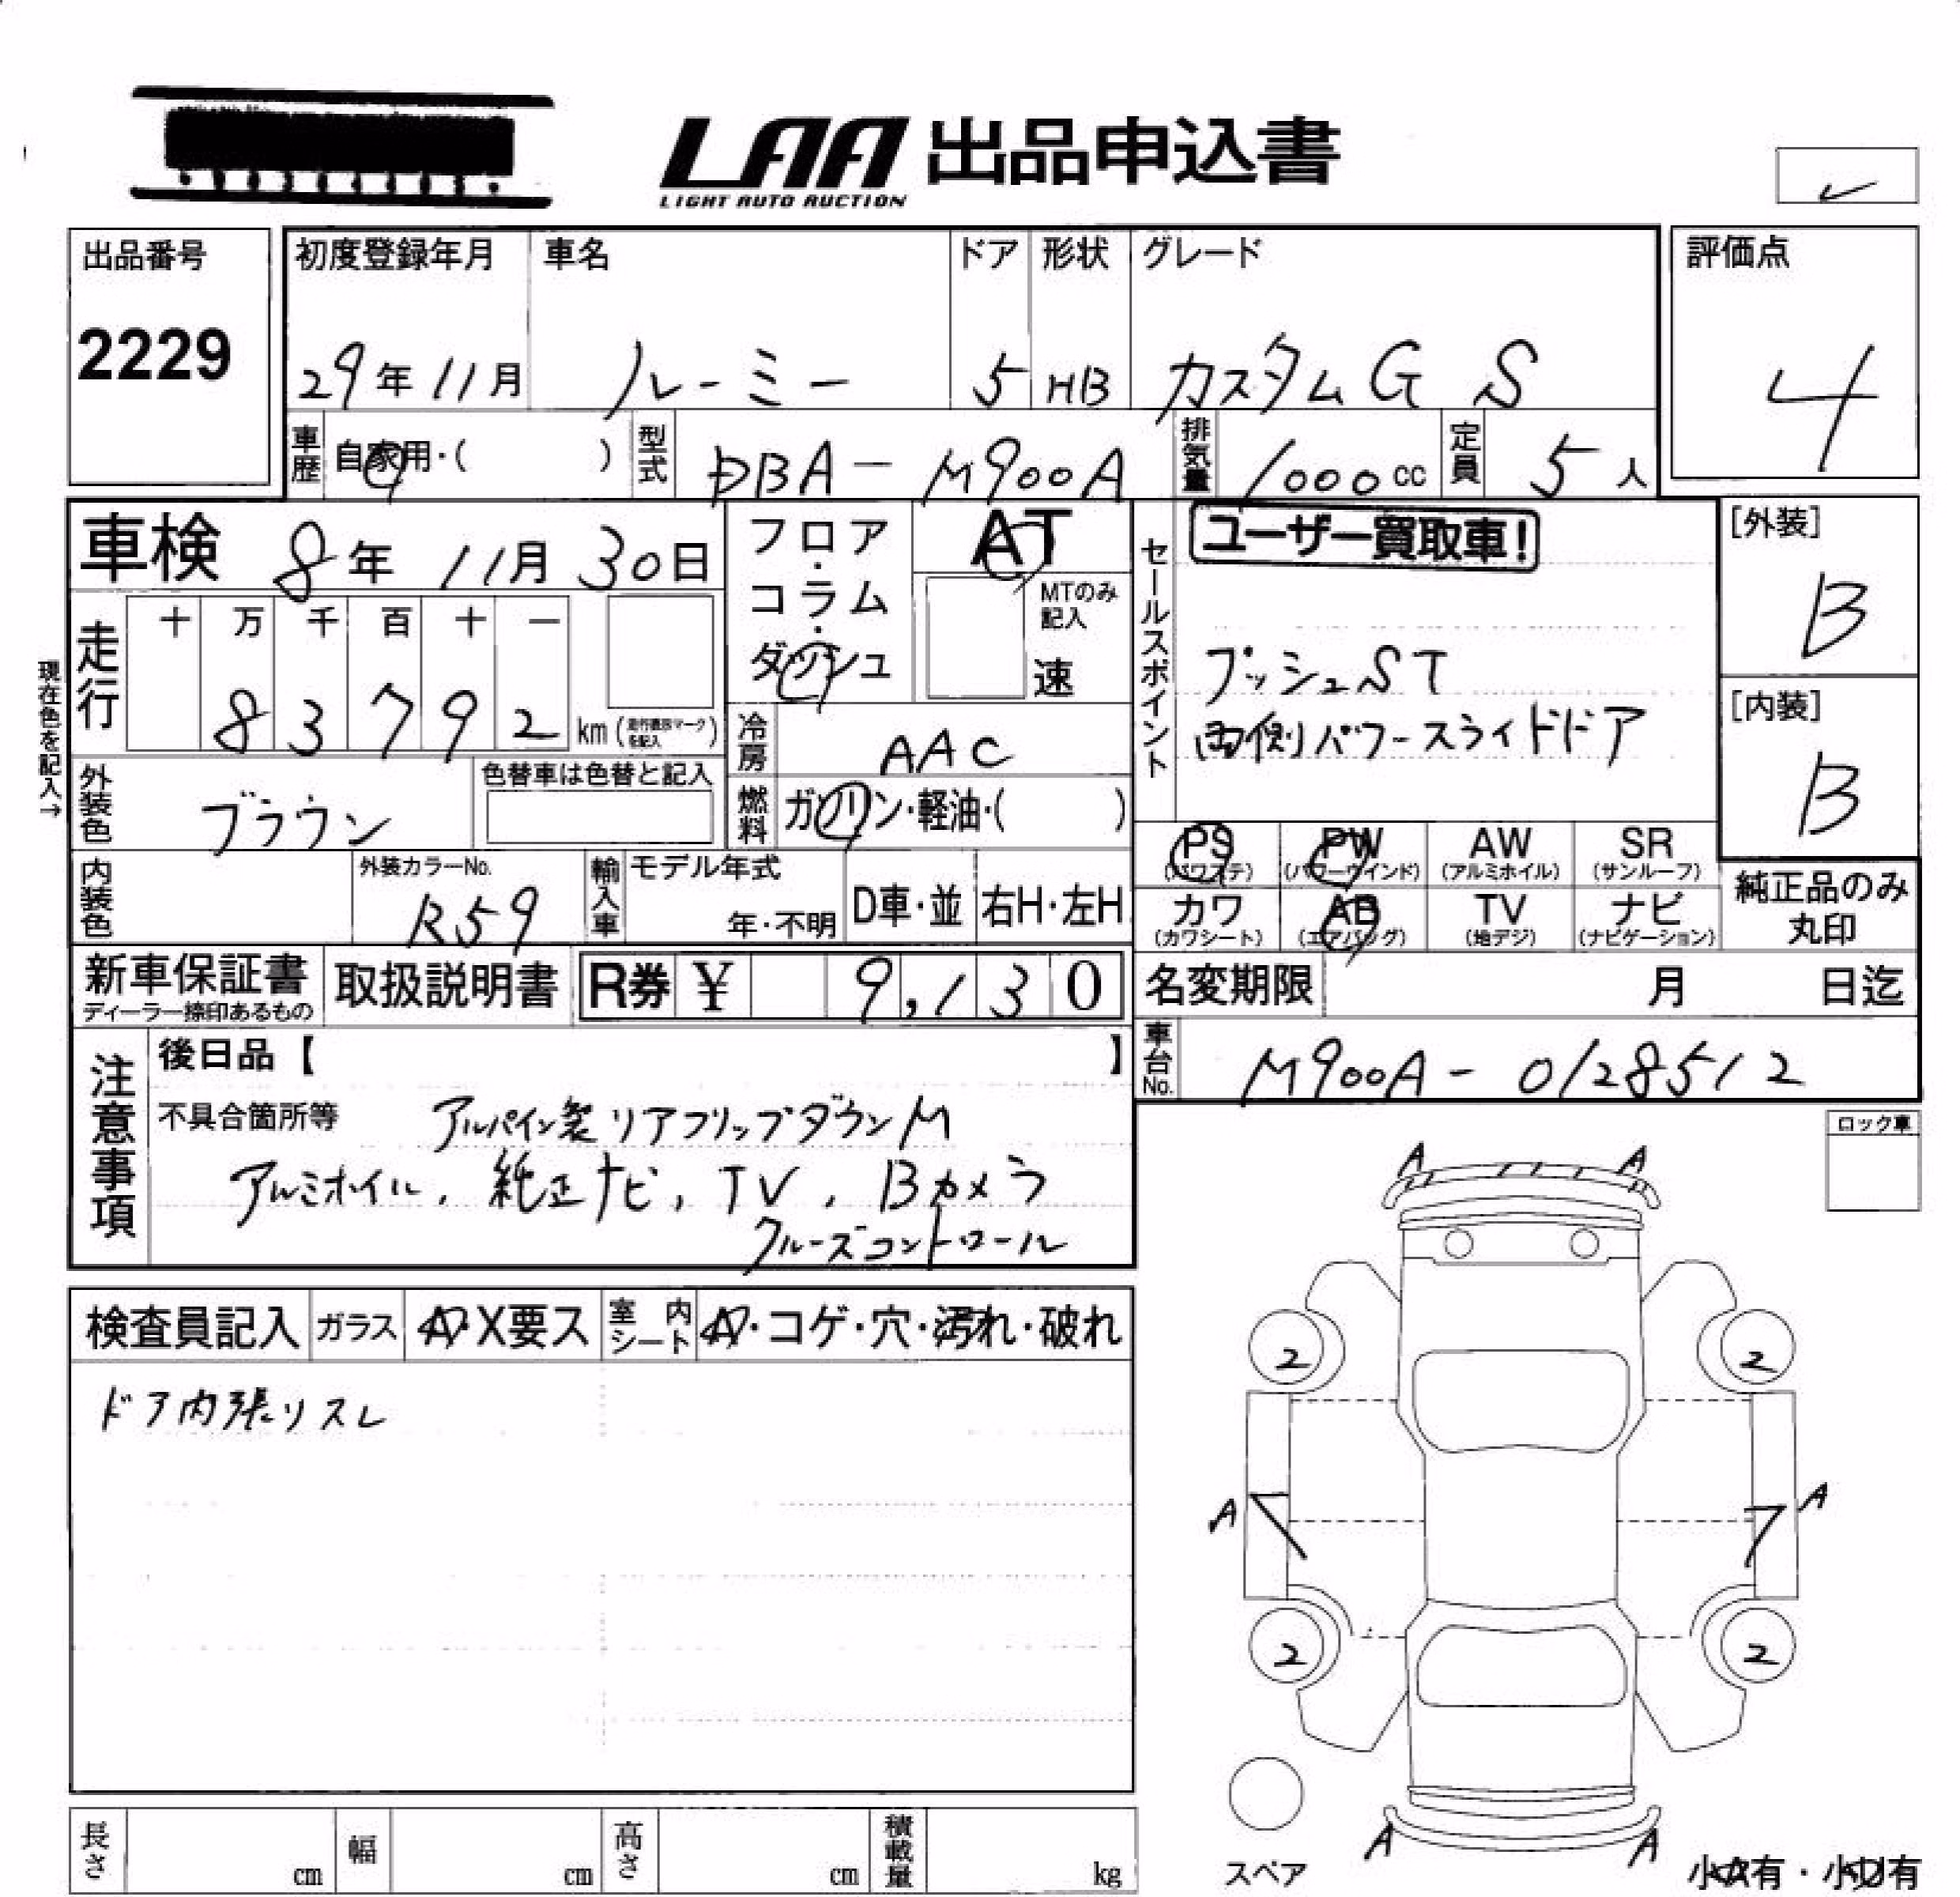 LAA 出品申込書
LIGHT AUTO AUCTION
出品番号 2229
初度登録年月 29年11月
車名 ルーミー
ドア 5
形状 HB
グレード カスタムG S
評価点 4
車歴 自家用・( )
型式 DBA-M900A
排気量 1000cc
定員 5人
車検 8年11月30日
フロア・コラム・ダッシュ
AT
MTのみ記入
速
セールスポイント
ユーザー買取車!
プッシュST
両側パワースライドドア
[外装] B
[内装] B
現在色を記入→
走行 十万千百十一
83792km
外装色 ブラウン
色替車は色替と記入
冷房 AAC
燃料 ガソリン・軽油・( )
PS (パワステ)
PW (パワーウインド)
AW (アルミホイル)
SR (サンルーフ)
カワ (カワシート)
AB (エアバッグ)
TV (地デジ)
ナビ (ナビゲーション)
純正品のみ丸印
内装色
外装カラーNo. R59
輸入車
モデル年式 年・不明
D車・並
右H・左H
新車保証書
ディーラー捺印あるもの
取扱説明書
R券 ¥ 9,130
名変期限 月 日迄
車台No. M900A-0128512
注意事項
後日品【 】
不具合箇所等 アルパイン製リアフリップダウンM
アルミホイル, 純正ナビ, TV, Bカメラ
クルーズコントロール
ロック車
検査員記入
ガラス A・X要ス
室内シート A・コゲ・穴・汚れ・破れ
ドア内張リスレ
A A
2 2
A A
2 2
A A
スペア
小A有・小U有
長さ cm
幅 cm
高さ cm
積載量 kg